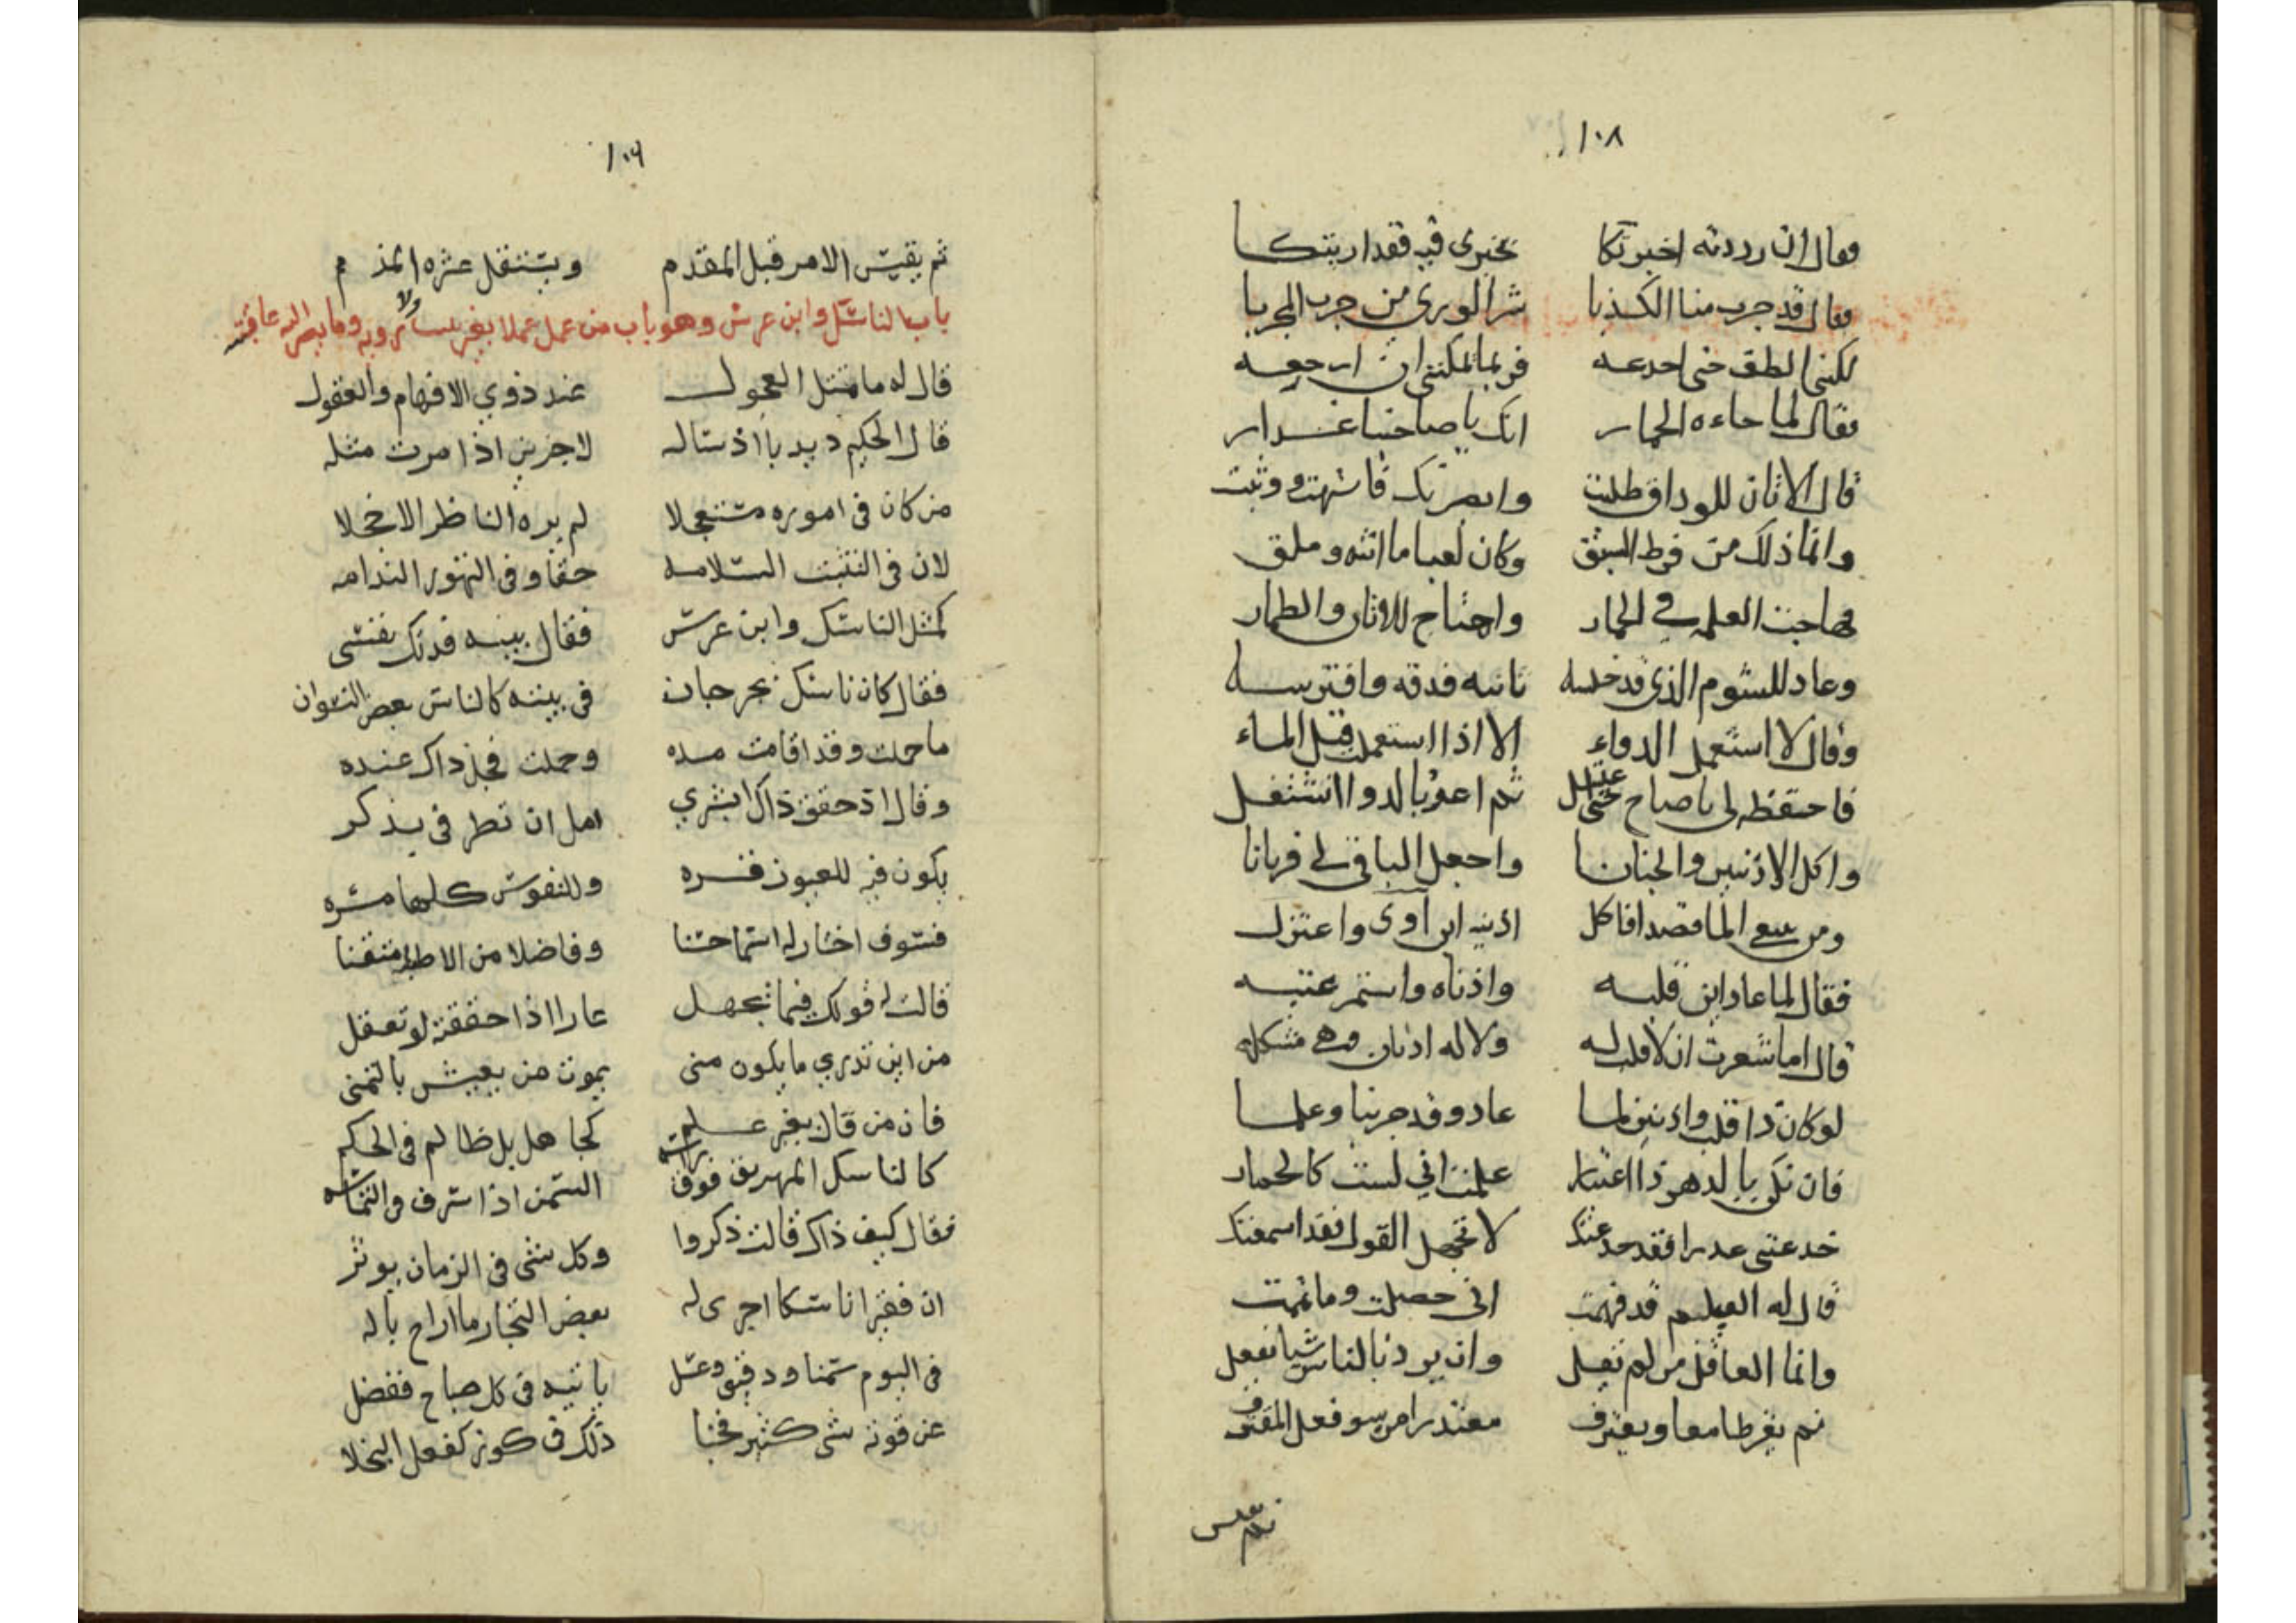 ١٠٨
فقال ان رددته اخبرتكا تخبرى فيه فقد اريتكا
فقال قد جرب منا الكذبا شر الورى من جرب المجربا
لكننى الطف حتى اخدعه فربما تمكننى ان ارجعه
فقال لما جاءه الحمار انك يا صاحبنا غدار
قال الاتان للوداق طلبت وابصرتك فاشتهت ووثبت
وانما ذلك من فرط الشبق وكان لعبا ما اتته وملق
فهاجت الغلمة في الحمار واحتاج للاتان والطمار
وعاد للشوم الذى قد خلسه ثانيه فدقه وافترسه
وقال لا استعمل الدواء الا اذا استعملت قبل الماء
فاحتفظ لى يا صاح حتى اغتسل ثم اعود بالدوا انشتغل
واكل الاذنين والجنانا واجعل الباقى لى قربانا
ومر يبغى الما قصدا فاكل اذنيه ابن اوى واعتزل
فقال لما عاد اين قلبه واذناه واستمر عتبه
قال اما شعرت ان لا قلب له ولا له اذنان وهى مشكله
لو كان ذا قلب واذنين لما عاد وقد جربنا وعلما
فان تكن بالدهر ذا اعتبار علمت انى لست كالحمار
خدعتنى غدرا فقد خدعتك لا تجهل القول فقد اسمعتك
قال له الغيلم قد فهمت انى حصلت وما نمت
وانما العاقل من لم يقل وان يرد بالناس شيا يفعل
ثم يفرط معا ويعترف معتذرا من سو فعل المقترف
ثم يقيس
١٠٩
ثم يقيس الامر قبل المقدم ويستقل عثره المذمم
باب الناسك وابن عرس وهو باب من عمل عملا بغير ... ولا رويه وما يصير اليه عاقبته
قال له ما مثل العجول عند ذوي الافهام والعقول
قال الحكيم ديدبا اذ ساله لاجزين اذا مرت مثله
من كان فى اموره مستعجلا لم يره الناظر الا خجلا
لان فى التثبت السلامه حقا وفى التهور الندامه
كمثل الناسك وابن عرس فقال بينه فدتك نفسى
فقال كان ناسك بجرجان فى بيته كالناس بعض النسوان
ما حملت وقد اقامت مده وحملت فجل ذاك عنده
وقال اذ حقق ذاك ابشري امل ان تطر فى بذكر
يكون فيه للعيون قره وللنفوس كلها مسره
فسوف اختار له اسما حسنا وفاضلا من الاطبا متقنا
قالت له قولك فيما تجهل عارا اذا حققته لو تعقل
من اين تدري ما يكون منى يموت من يعيش بالتمنى
فان من قال بغير علم كجاهل بل ظالم فى الحكم
كالناسك المهريق فوق راسه السمن اذا سرف والتماسه
فقال كيف ذاك قالت ذكروا وكل شى فى الزمان يوثر
ان فقيرا ناسكا اجرى له بعض التجار ما اراح باله
فى اليوم سمنا ودقيق وعسل ياتيه فى كل صباح ففضل
عن قوته شى كثير فخبا ذلك فى كوز كفعل البخلا